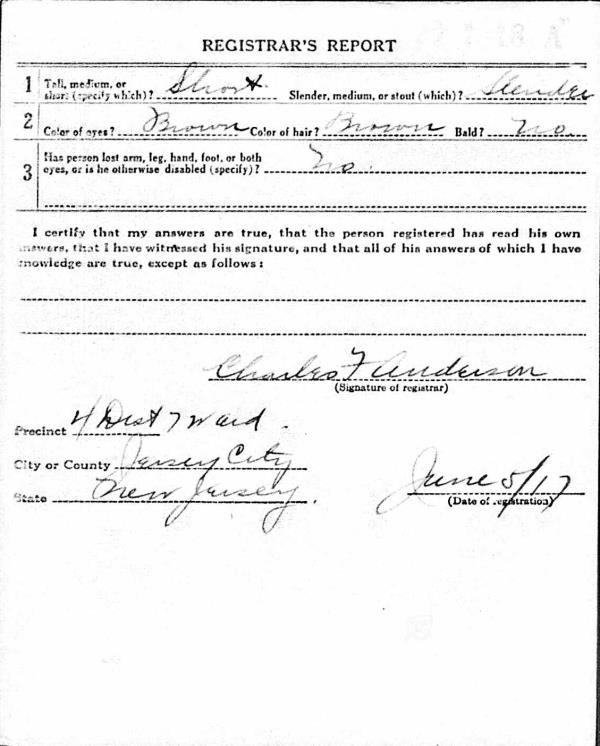 REGISTRAR'S REPORT
1 Tall, medium, or short (specify which)? Short Slender, medium, or stout (which)? Slender
2 Color of eyes? Brown Color of hair? Brown Bald? No
3 Has person lost arm, leg, hand, foot, or both
eyes, or is he otherwise disabled (specify)? No.
I certify that my answers are true, that the person registered has read his own
answers, that I have witnessed his signature, and that all of his answers of which I have
knowledge are true, except as follows:
Charles F Anderson
(Signature of registrar)
Precinct 4 Dist 7 Ward.
City or County Jersey City
State New Jersey.
June 5/17
(Date of registration)